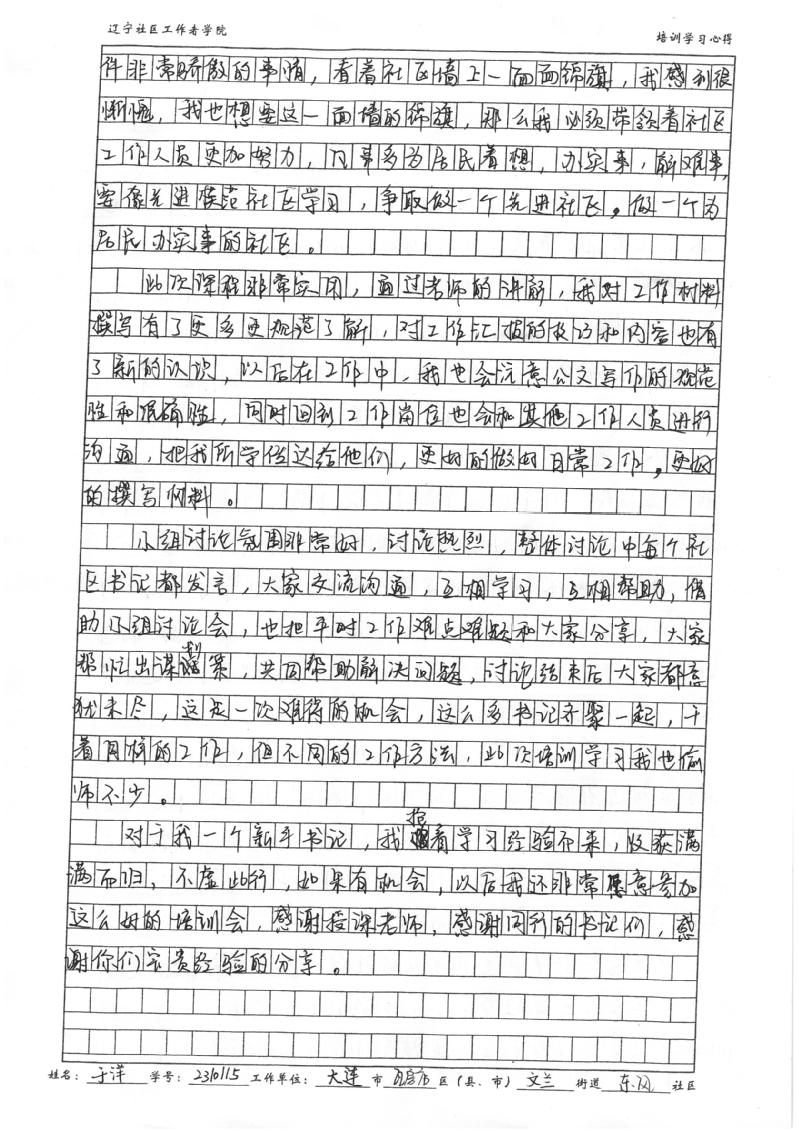 辽宁社区工作者学院
培训学习心得
件非常骄傲的事情，看着社区墙上一面面锦旗，我感到很
惭愧，我也想要这一面墙的锦旗，那么我必须带领着社区
工作人员更加努力，凡事多为居民着想，办实事，解难事，
要像先进模范社区学习，争取做一个先进社区。做一个为
居民办实事的社区。
此次课程非常实用，通过老师的讲解，我对工作材料
撰写有了更多更规范了解，对工作汇报的技巧和内容也有
了新的认识，以后在工作中，我也会注意公文写作的规范
性和准确性，同时回到工作岗位也会和其他工作人员进行
沟通，把我所学传达给他们，更好的做好日常工作，更好
的撰写材料。
小组讨论氛围非常好，讨论热烈，整体讨论中每个社
区书记都发言，大家交流沟通，互相学习，互相帮助，借
助小组讨论会，也把平时工作难点难题和大家分享，大家
帮忙出谋划策，共同帮助解决问题，讨论结束后大家都意
犹未尽，这是一次难得的机会，这么多书记齐聚一起，干
着同样的工作，但不同的工作方法，此次培训学习我也偷
师不少。
对于我一个新手书记，我抱着学习经验而来，收获满
满而归，不虚此行，如果有机会，以后我还非常愿意参加
这么好的培训会，感谢授课老师，感谢同行的书记们，感
谢你们宝贵经验的分享。
姓名：于洋 学号：2310115 工作单位：大连市瓦房店区（县、市）文兰街道东风社区